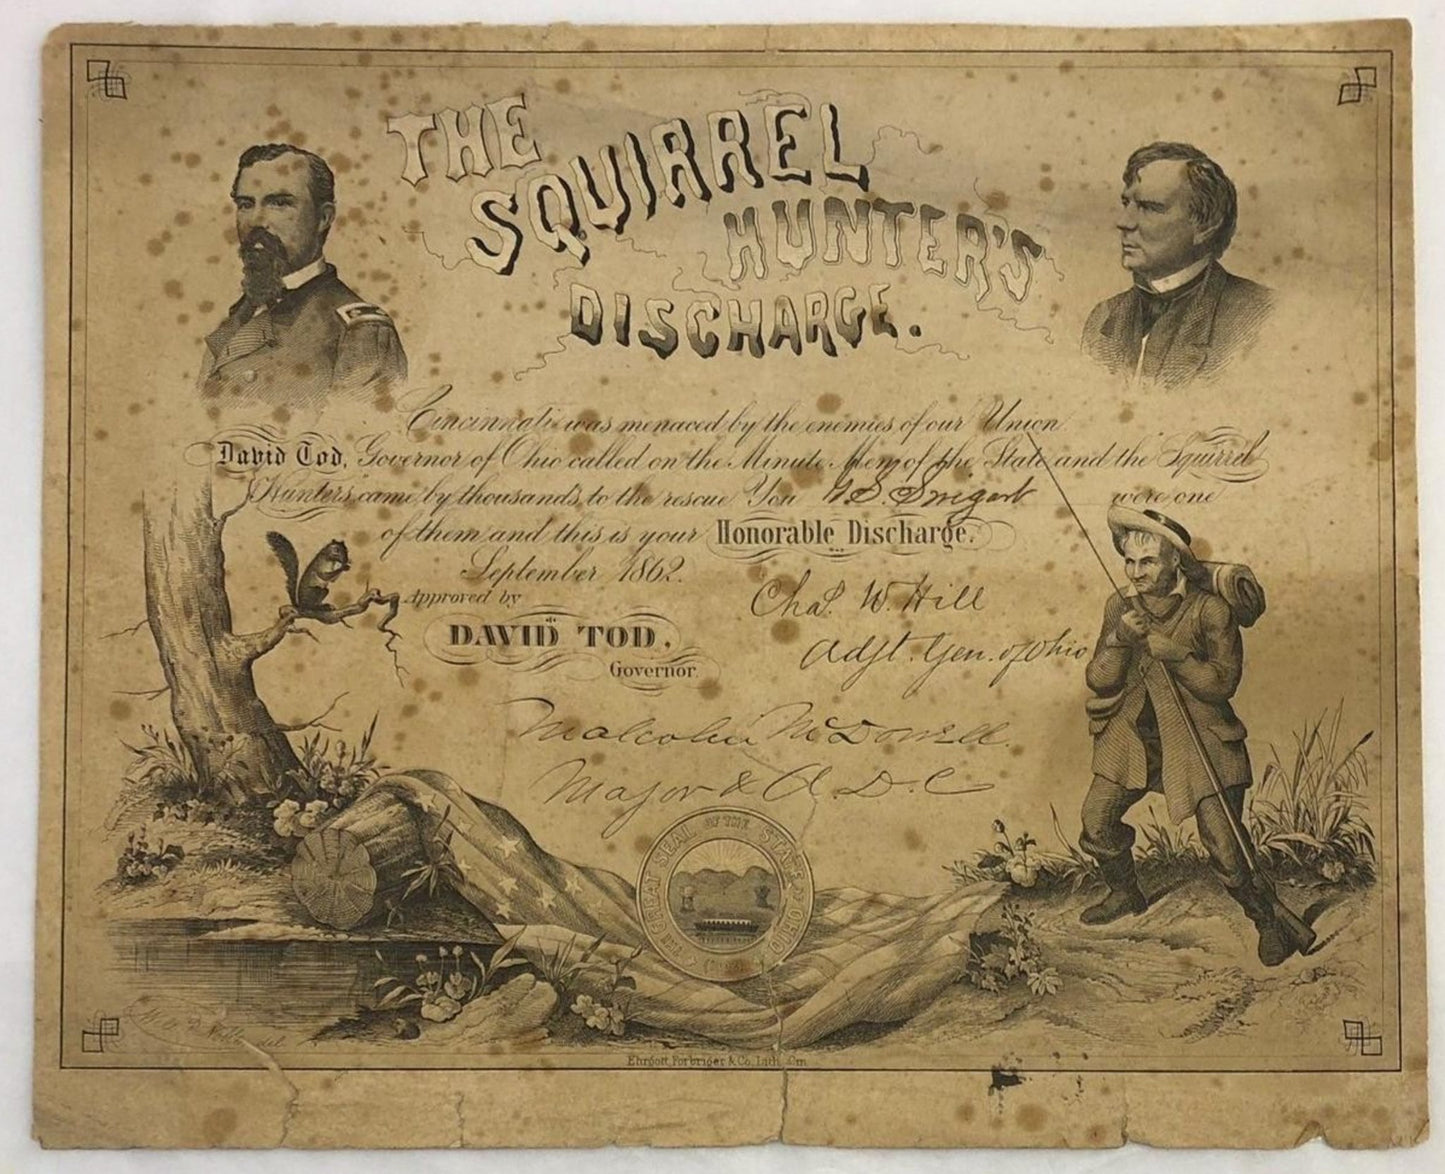 THE
SQUIRREL
HUNTER'S
DISCHARGE.
Cincinnati was menaced by the enemies of our Union
David Tod, Governor of Ohio called on the Minute Men of the State, and the "Squirrel
Hunters" came by thousands to the rescue You S. Swigart were one
of them and this is your Honorable Discharge.
September 1862.
Approved by
Chas. W. Hill
DAVID TOD,
Adjt. Gen. of Ohio
Governor.
Malcolm McDowell.
Major & A. D. C
THE GREAT SEAL OF THE STATE OF OHIO
del.
Ehrgott, Forbriger & Co. Lith. Cin.